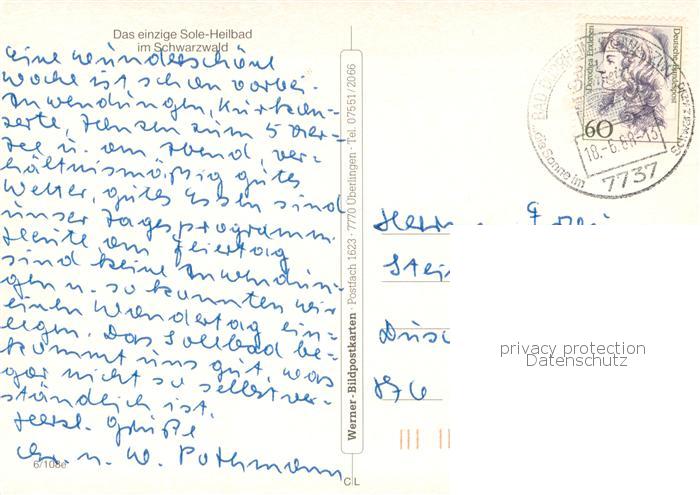 Das einzige Sole-Heilbad
im Schwarzwald
eine wunderschöne
Woche ist schon vorbei.
Anwendungen, Kurkon-
zerte, Tanzen zum 5 Uhr-
tee u. am Abend, ver-
hältnismäßig gutes
Wetter, gutes Essen sind
unser Tagesprogramm.
Heute am Feiertag
sind keine Anwendun-
gen u. so konnten wir
einen Wandertag ein-
legen. Das Solbad be-
kommt uns gut, was
gar nicht so selbstver-
ständlich ist.
Herzl. Grüße
u. W. Pothmann
6/108e
Werner-Bildpostkarten · Postfach 1623 · 7770 Überlingen · Tel. 07551/2066
CL
Deutsche Bundespost
Dorothea Erxleben
60
BAD DÜRRHEIM
18.-6.88-13
7737
die Sonne im
Schwarzwald
Herrn
876
privacy protection
Datenschutz